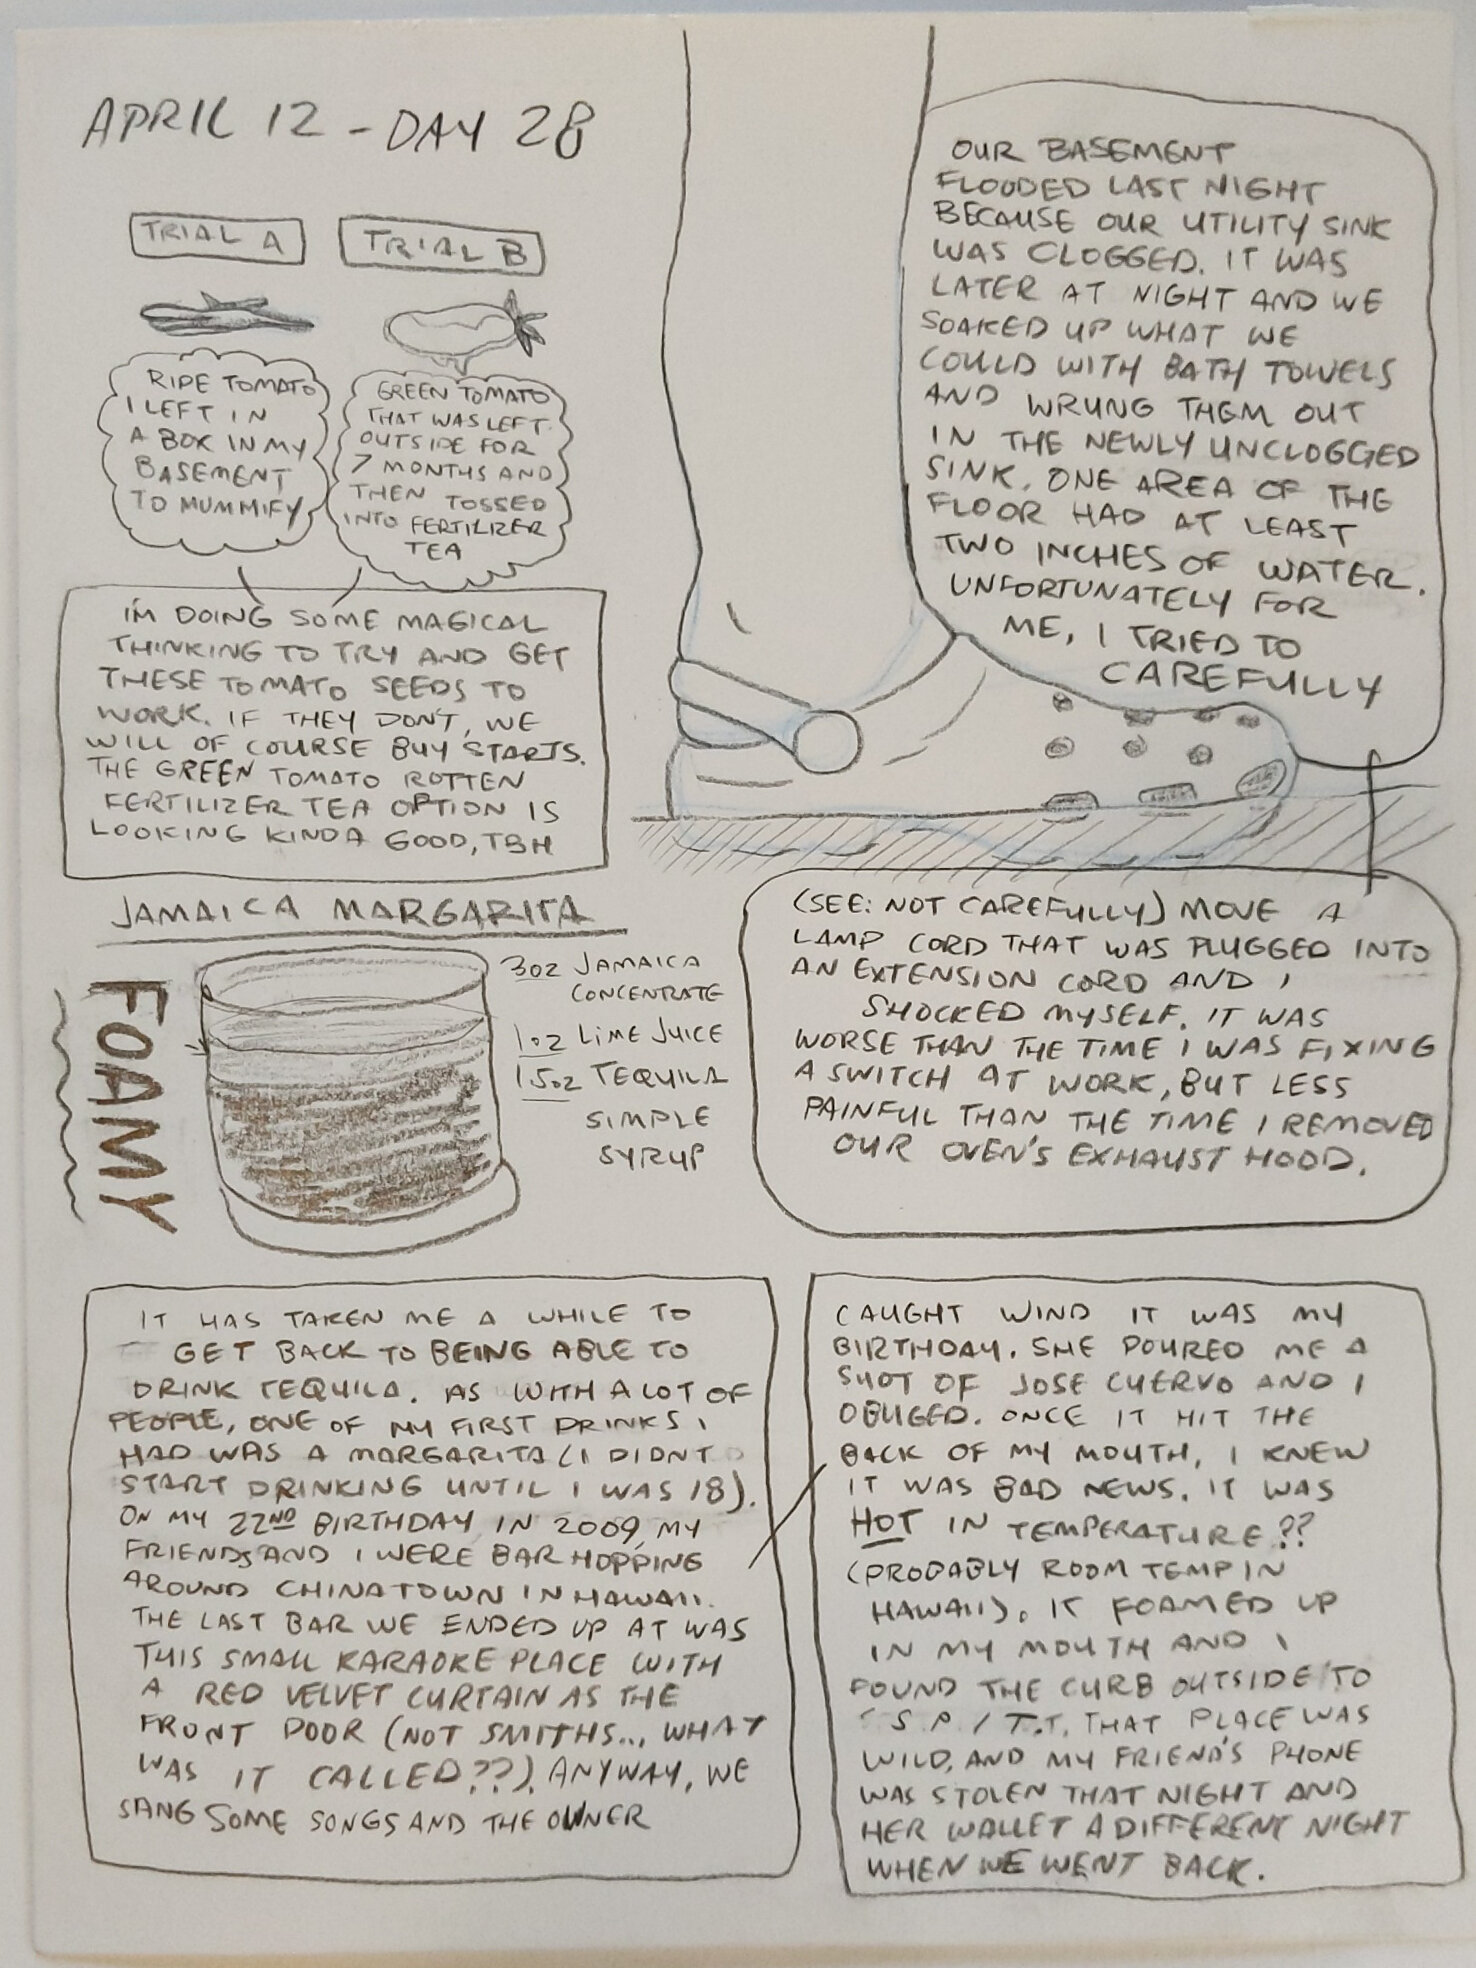 APRIL 12 - DAY 28
TRIAL A
RIPE TOMATO
I LEFT IN
A BOX IN MY
BASEMENT
TO MUMMIFY
TRIAL B
GREEN TOMATO
THAT WAS LEFT
OUTSIDE FOR
7 MONTHS AND
THEN TOSSED
INTO FERTILIZER
TEA
I'M DOING SOME MAGICAL
THINKING TO TRY AND GET
THESE TOMATO SEEDS TO
WORK. IF THEY DON'T, WE
WILL OF COURSE BUY STARTS.
THE GREEN TOMATO ROTTEN
FERTILIZER TEA OPTION IS
LOOKING KINDA GOOD, TBH
OUR BASEMENT
FLOODED LAST NIGHT
BECAUSE OUR UTILITY SINK
WAS CLOGGED. IT WAS
LATER AT NIGHT AND WE
SOAKED UP WHAT WE
COULD WITH BATH TOWELS
AND WRUNG THEM OUT
IN THE NEWLY UNCLOGGED
SINK. ONE AREA OF THE
FLOOR HAD AT LEAST
TWO INCHES OF WATER.
UNFORTUNATELY FOR
ME, I TRIED TO
CAREFULLY
(SEE: NOT CAREFULLY) MOVE A
LAMP CORD THAT WAS PLUGGED INTO
AN EXTENSION CORD AND I
SHOCKED MYSELF. IT WAS
WORSE THAN THE TIME I WAS FIXING
A SWITCH AT WORK, BUT LESS
PAINFUL THAN THE TIME I REMOVED
OUR OVEN'S EXHAUST HOOD.
JAMAICA MARGARITA
FOAMY
3oz JAMAICA
CONCENTRATE
1oz LIME JUICE
1.5oz TEQUILA
SIMPLE
SYRUP
IT HAS TAKEN ME A WHILE TO
GET BACK TO BEING ABLE TO
DRINK TEQUILA. AS WITH A LOT OF
PEOPLE, ONE OF MY FIRST DRINKS I
HAD WAS A MARGARITA (I DIDNT
START DRINKING UNTIL I WAS 18).
ON MY 22ND BIRTHDAY IN 2009, MY
FRIENDS AND I WERE BAR HOPPING
AROUND CHINATOWN IN HAWAII.
THE LAST BAR WE ENDED UP AT WAS
THIS SMALL KARAOKE PLACE WITH
A RED VELVET CURTAIN AS THE
FRONT DOOR (NOT SMITHS... WHAT
WAS IT CALLED??). ANYWAY, WE
SANG SOME SONGS AND THE OWNER
CAUGHT WIND IT WAS MY
BIRTHDAY. SHE POURED ME A
SHOT OF JOSE CUERVO AND I
OBLIGED. ONCE IT HIT THE
BACK OF MY MOUTH, I KNEW
IT WAS BAD NEWS. IT WAS
HOT IN TEMPERATURE??
(PROBABLY ROOM TEMP IN
HAWAII). IT FOAMED UP
IN MY MOUTH AND I
FOUND THE CURB OUTSIDE TO
S P I T. THAT PLACE WAS
WILD, AND MY FRIEND'S PHONE
WAS STOLEN THAT NIGHT AND
HER WALLET A DIFFERENT NIGHT
WHEN WE WENT BACK.